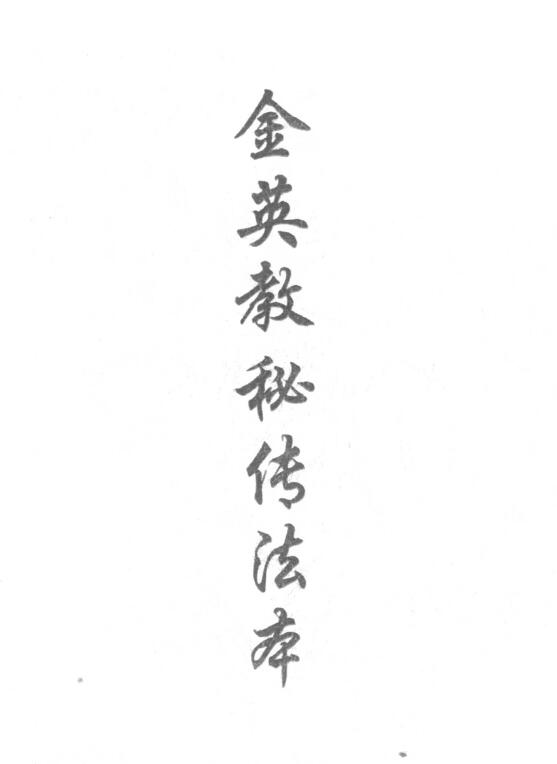 金英教秘传法本